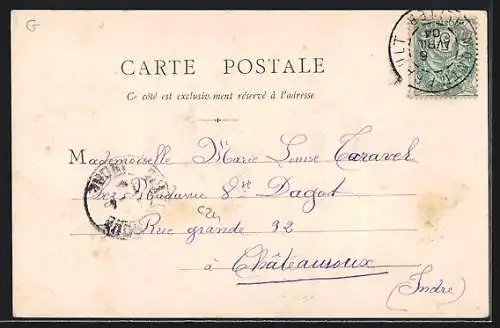 G
CARTE POSTALE
Ce côté est exclusivement réservé à l'adresse
AVRIL
04
Mademoiselle Marie Louise Taravel
chez Madame Vve Dagot
Rue grande 92
à Châteauroux
(Indre)